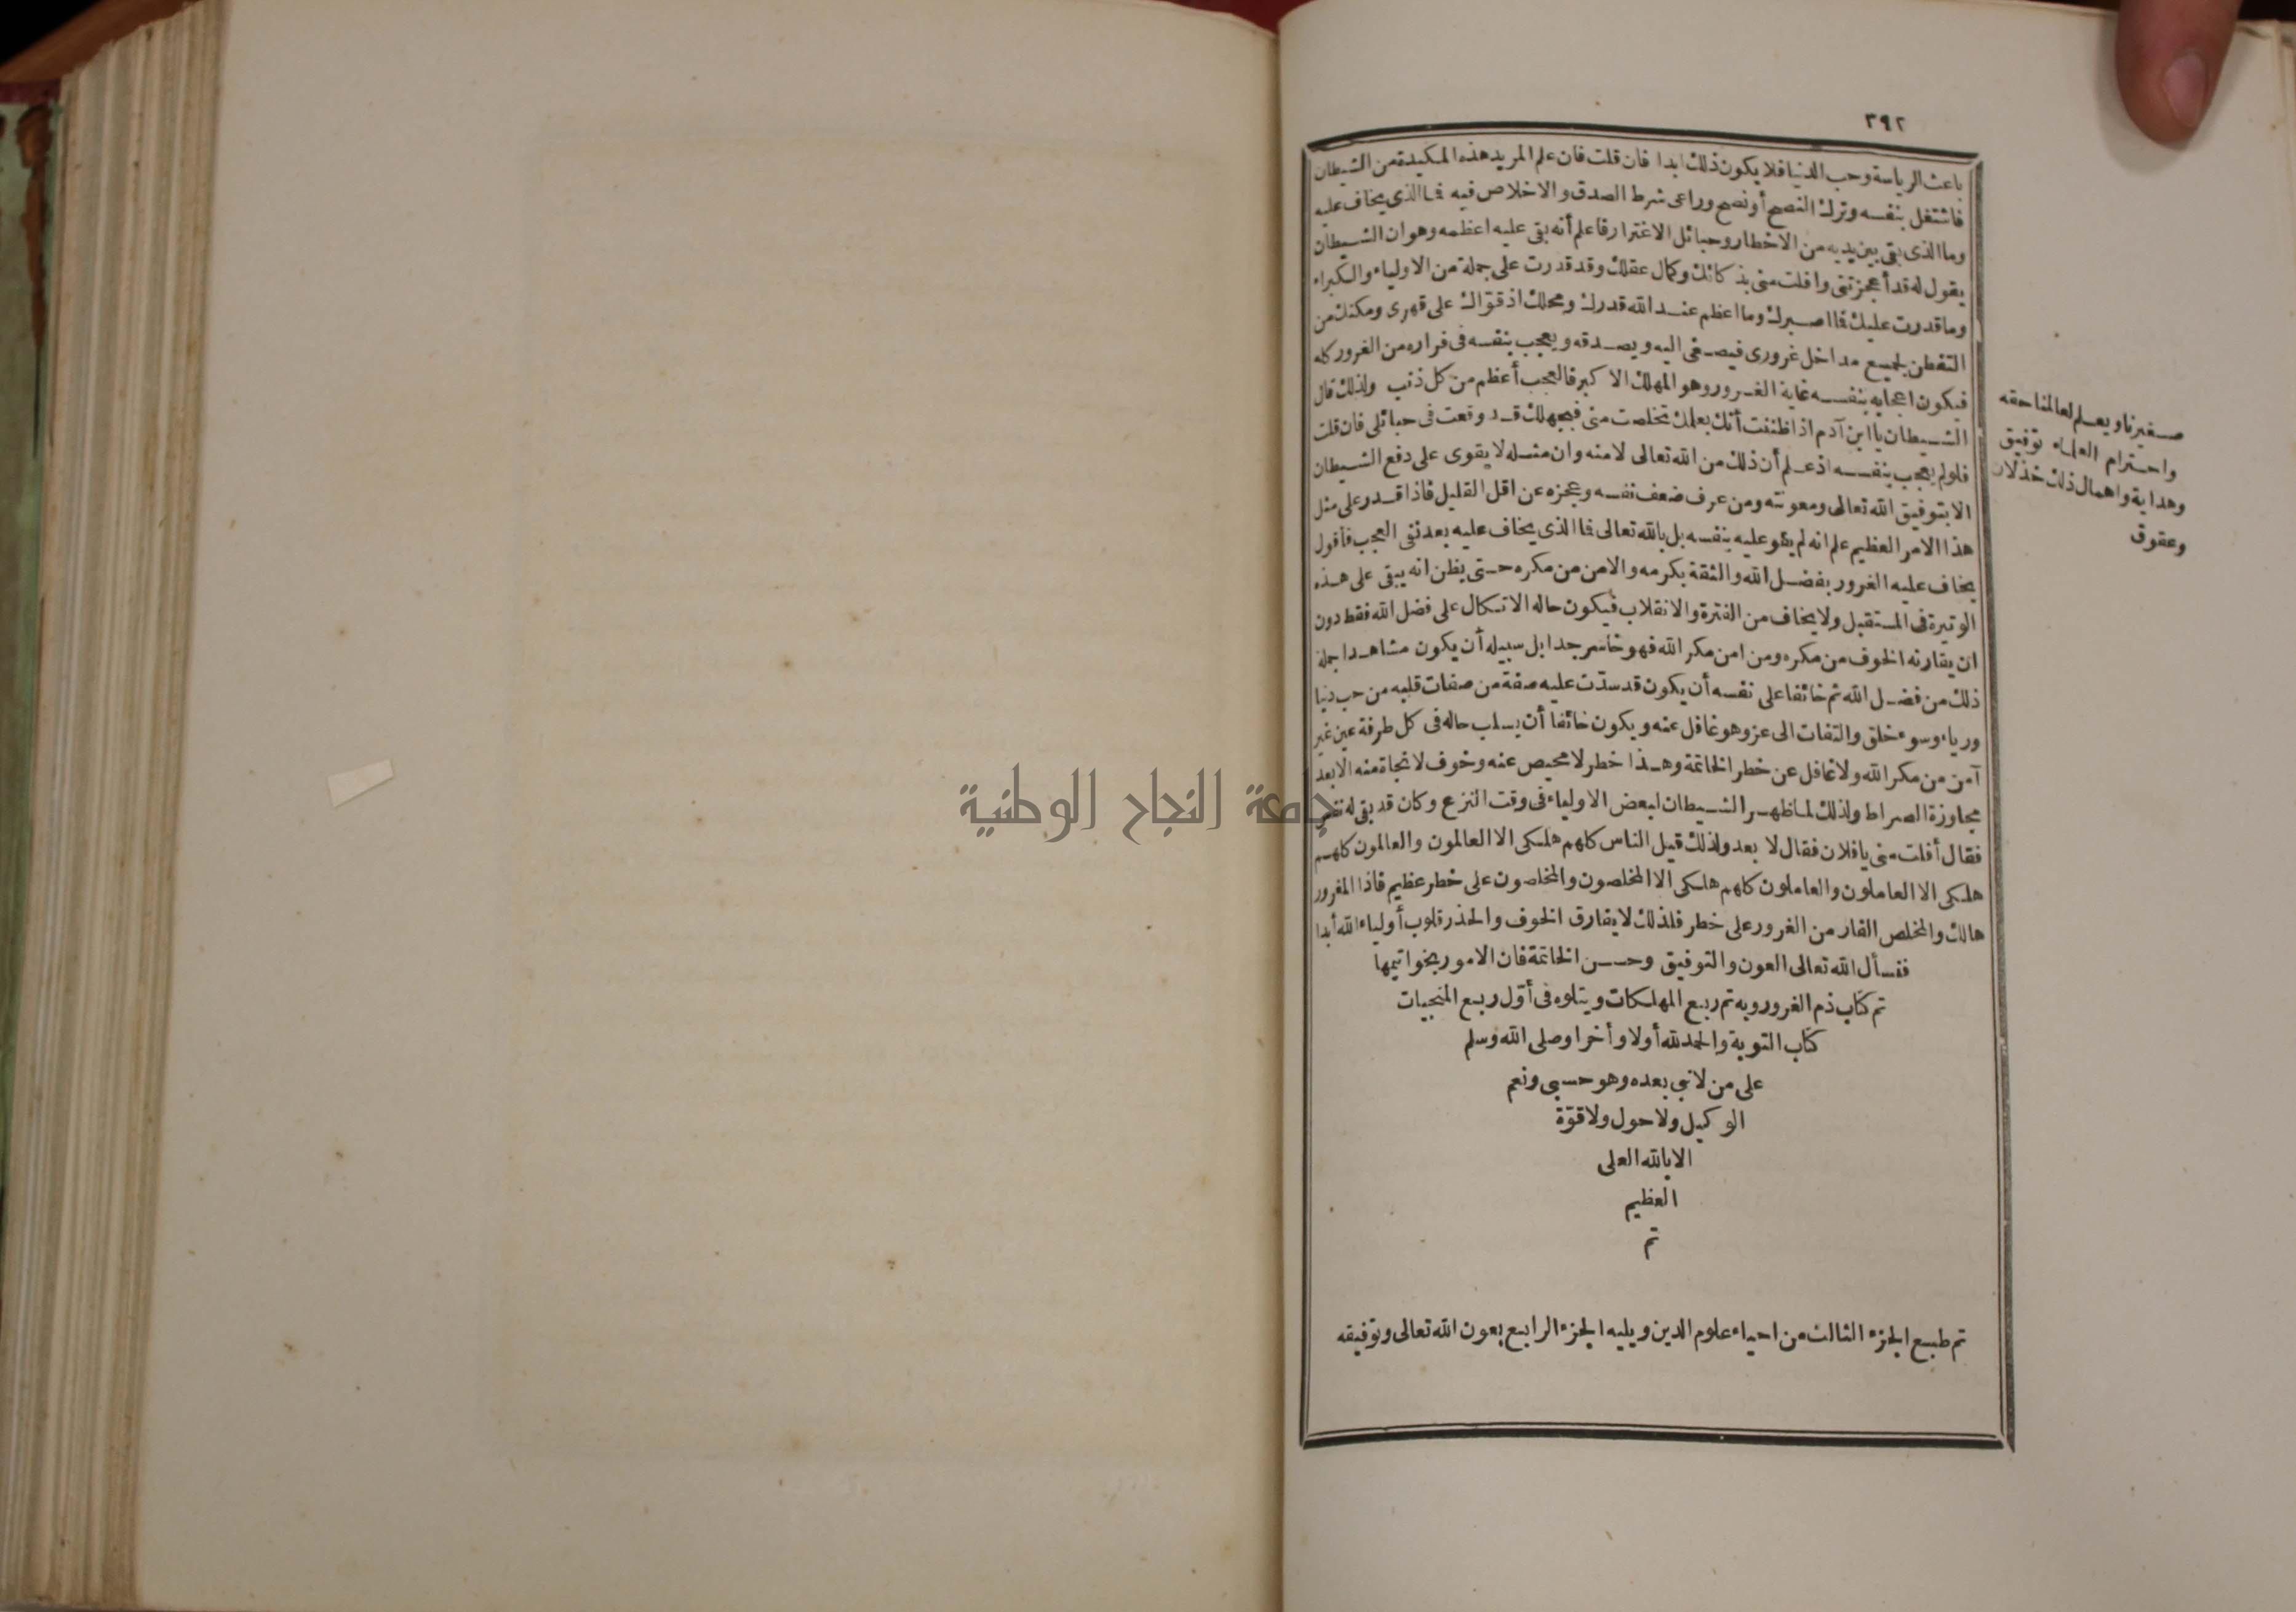 ٣٩٢
باعث الرياسة وحب الدنيا فلا يكون ذلك ابدا فان قلت فان علم المريد هذه المكيدة من الشيطان
فاشتغل بنفسه وترك النصح أو نصح وراعى شرط الصدق والاخلاص فيه فما الذى يخاف عليه
وما الذى بقى بين يديه من الاخطار وحبائل الاغترار فاعلم أنه بقى عليه اعظمه وهو ان الشيطان
يقول له قد أعجزتنى وافلت منى بذكائك وكمال عقلك وقد قدرت على جملة من الاولياء والكبراء
وما قدرت عليك فما اصبرك وما اعظم عند الله قدرك ومحلك اذ قواك على قهرى ومكنك من
التفطن لجميع مداخل غرورى فيصغى اليه ويصدقه ويعجب بنفسه فى فراره من الغرور كله
فيكون اعجابه بنفسه غاية الغرور وهو المهلك الاكبر فالعجب أعظم من كل ذنب ولذلك قال
الشيطان يا ابن آدم اذا ظننت أنك بعلمك تخلصت منى فبجهلك قد وقعت فى حبائلى فان قلت
فلو لم يعجب بنفسه اذ علم أن ذلك من الله تعالى لا منه وان مثله لا يقوى على دفع الشيطان
الا بتوفيق الله تعالى ومعونته ومن عرف ضعف نفسه وعجزه عن اقل القليل فاذا قدر على مثل
هذا الامر العظيم علم انه لم يقو عليه بنفسه بل بالله تعالى فما الذى يخاف عليه بعد نفى العجب فأقول
يخاف عليه الغرور بفضل الله والثقة بكرمه والامن من مكره حتى يظن انه يبقى على هذه
الوتيرة فى المستقبل ولا يخاف من الفترة والانقلاب فيكون حاله الاتكال على فضل الله فقط دون
ان يقارنه الخوف من مكره ومن امن مكر الله فهو خاسر جدا بل سبيله أن يكون مشاهدا جملة
ذلك من فضل الله ثم خائفا على نفسه أن يكون قد سدّت عليه صفة من صفات قلبه من حب دنيا
ورياء وسوء خلق والتفات الى عز وهو غافل عنه ويكون خائفا أن يسلب حاله فى كل طرفة عين غير
آمن من مكر الله ولا غافل عن خطر الخاتمة وهذا خطر لا محيص عنه وخوف لا نجاة منه الا بعد
مجاوزة الصراط ولذلك لما ظهر الشيطان لبعض الاولياء فى وقت النزع وكان قد بقى له نفس
فقال أفلت منى يا فلان فقال لا بعد ولذلك قيل الناس كلهم هلكى الا العالمون والعالمون كلهم
هلكى الا العاملون والعاملون كلهم هلكى الا المخلصون والمخلصون على خطر عظيم فاذا المغرور
هالك والمخلص الفار من الغرور على خطر فلذلك لا يفارق الخوف والحذر قلوب أولياء الله أبدا
فنسأل الله تعالى العون والتوفيق وحسن الخاتمة فان الامور بخواتيمها
تم كتاب ذم الغرور وبه تم ربيع المهلكات ويتلوه فى أوّل ربيع المنجيات
كتاب التوبة والحمد لله أولا وأخرا وصلى الله وسلم
على من لا نبى بعده وهو حسبى ونعم
الوكيل ولا حول ولا قوّة
الا بالله العلى
العظيم
تم
تم طبع الجزء الثالث من احياء علوم الدين ويليه الجزء الرابع بعون الله تعالى وتوفيقه
صغيرنا ويعلم لعالمنا حقه
واحترام العلماء توفيق
وهداية واهمال ذلك خذلان
وعقوق
جامعة النجاح الوطنية